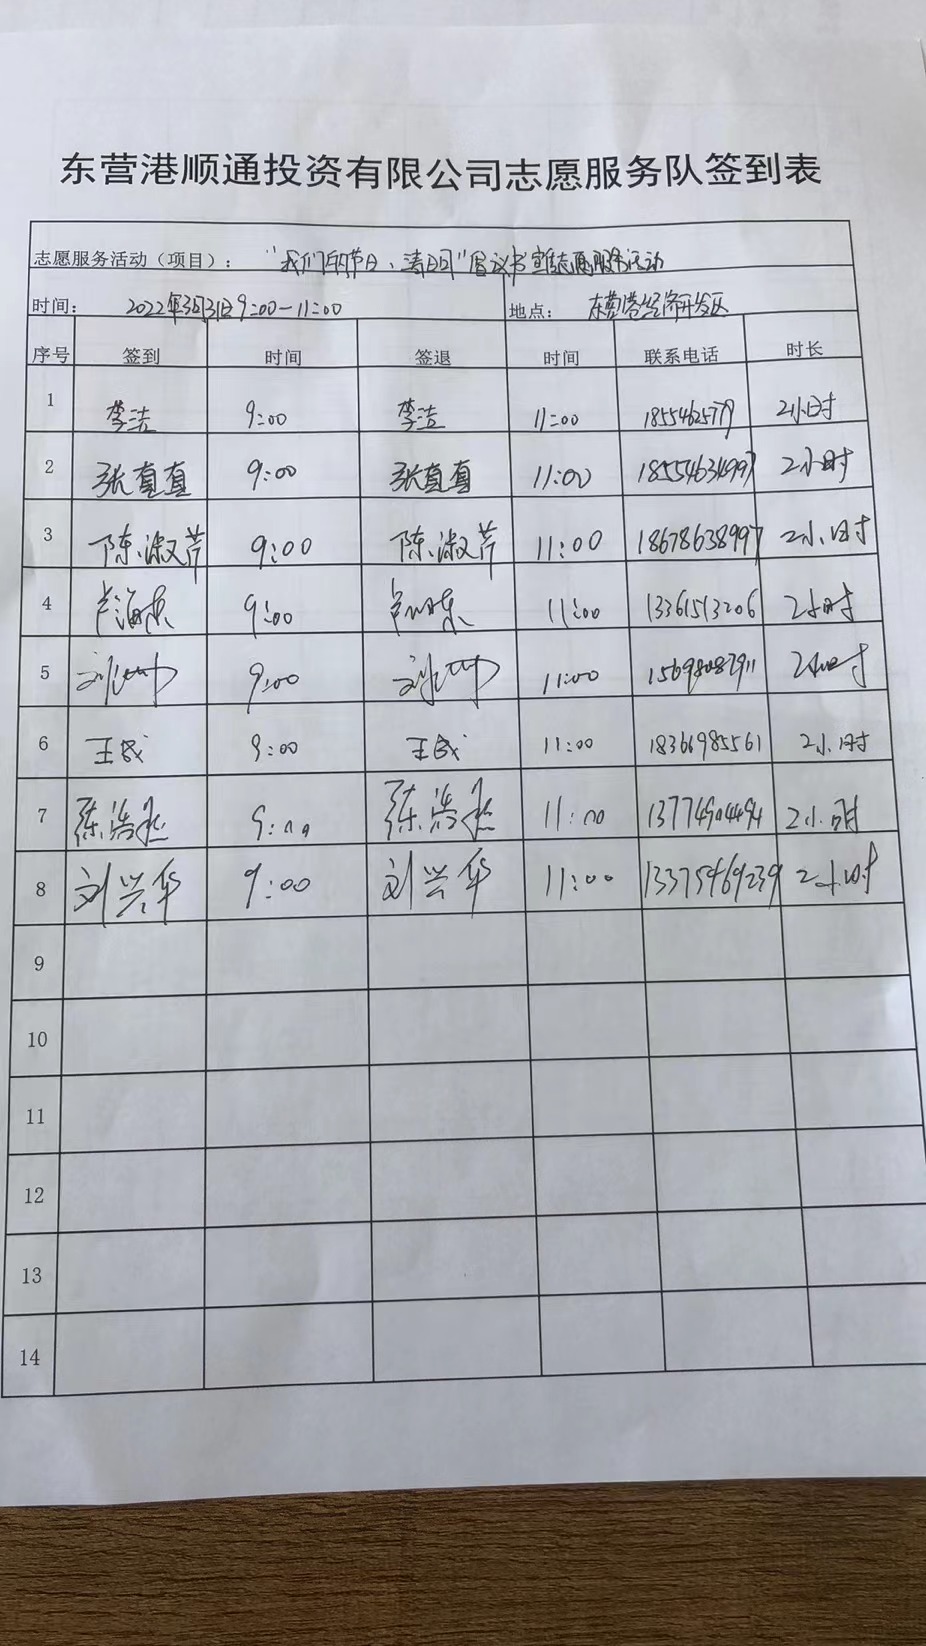 东营港顺通投资有限公司志愿服务队签到表
志愿服务活动（项目）： “我们的节日、清明”倡议书宣传志愿服务活动
时间： 2022年3月31日9:00-11:00 地点： 东营港经济开发区
序号 签到 时间 签退 时间 联系电话 时长
1 李洁 9:00 李洁 11:00 2小时
2 张直直 9:00 张直直 11:00 18554631997 2小时
3 陈淑芹 9:00 陈淑芹 11:00 18678638997 2小时
4 卢海东 9:00 11:00 13361513206 2小时
5 9:00 11:00 15698087911 2小时
6 王成 9:00 王成 11:00 18366985561 2小时
7 9:00 11:00 13774904494 2小时
8 刘兴华 9:00 刘兴华 11:00 13375469239 2小时
9
10
11
12
13
14